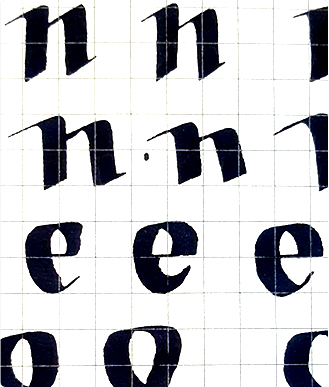 n n n
n n n
e e e
o o o